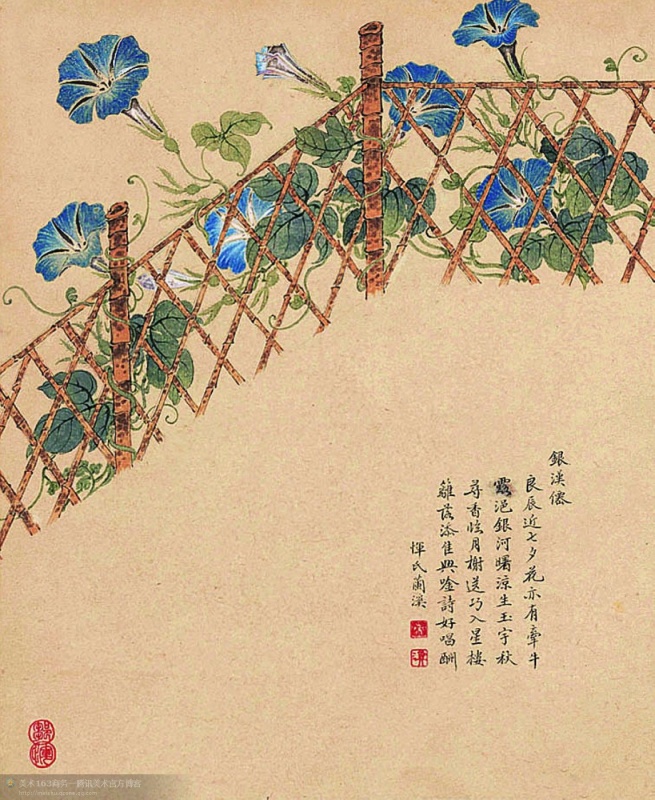 銀漢僊
良辰近七夕花亦有牽牛
露浥銀河曙涼生玉宇秋
尋香臨月榭送巧入星樓
籬落添佳興唫詩好唱酬
惲氏蘭溪